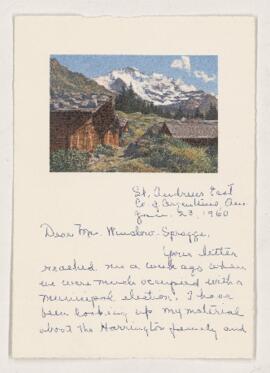 St. Andrews East
Co of Argenteuil, Que.
Jan. 23, 1960
Dear Mr. Winslow-Spragge,
Your letter
reached me a week ago when
we were much occupied with a
municipal election. I have
been looking up my material
about the Harrington family and